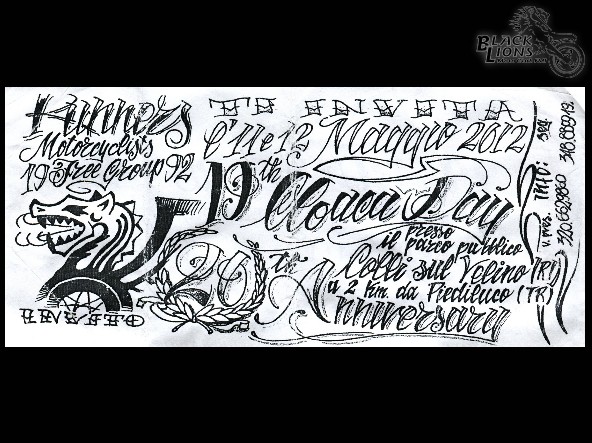 BLACK
LIONS
Runners
Motorcyclists
19 Free Group 92
TE INVITA
l'11 e 12 Maggio 2012
19th Cloaca Day
presso
il parco pubblico
Colli sul Velino (RI)
a 2 km. da Piediluco (TR)
20th Anniversary
INFO:
v. pres.
seg.